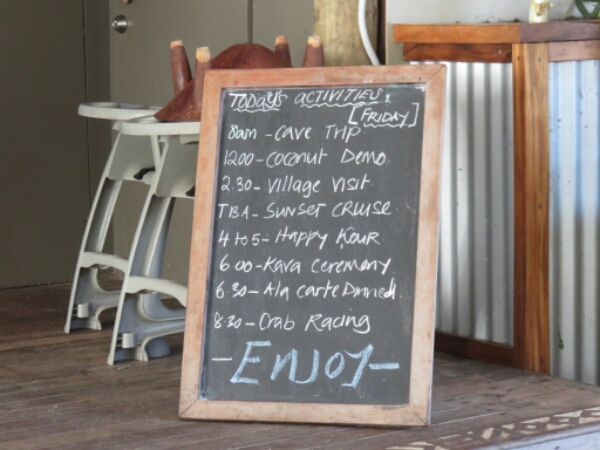 TODAY'S ACTIVITIES.
[FRIDAY]
8am - Cave Trip
1200 - Coconut Demo.
2.30 - Village Visit.
TBA - Sunset Cruise
4 to 5 - Happy Hour
6.00 - Kava Ceremony
6.30 - Ala carte Dinner
8.30 - Crab Racing
- ENJOY -